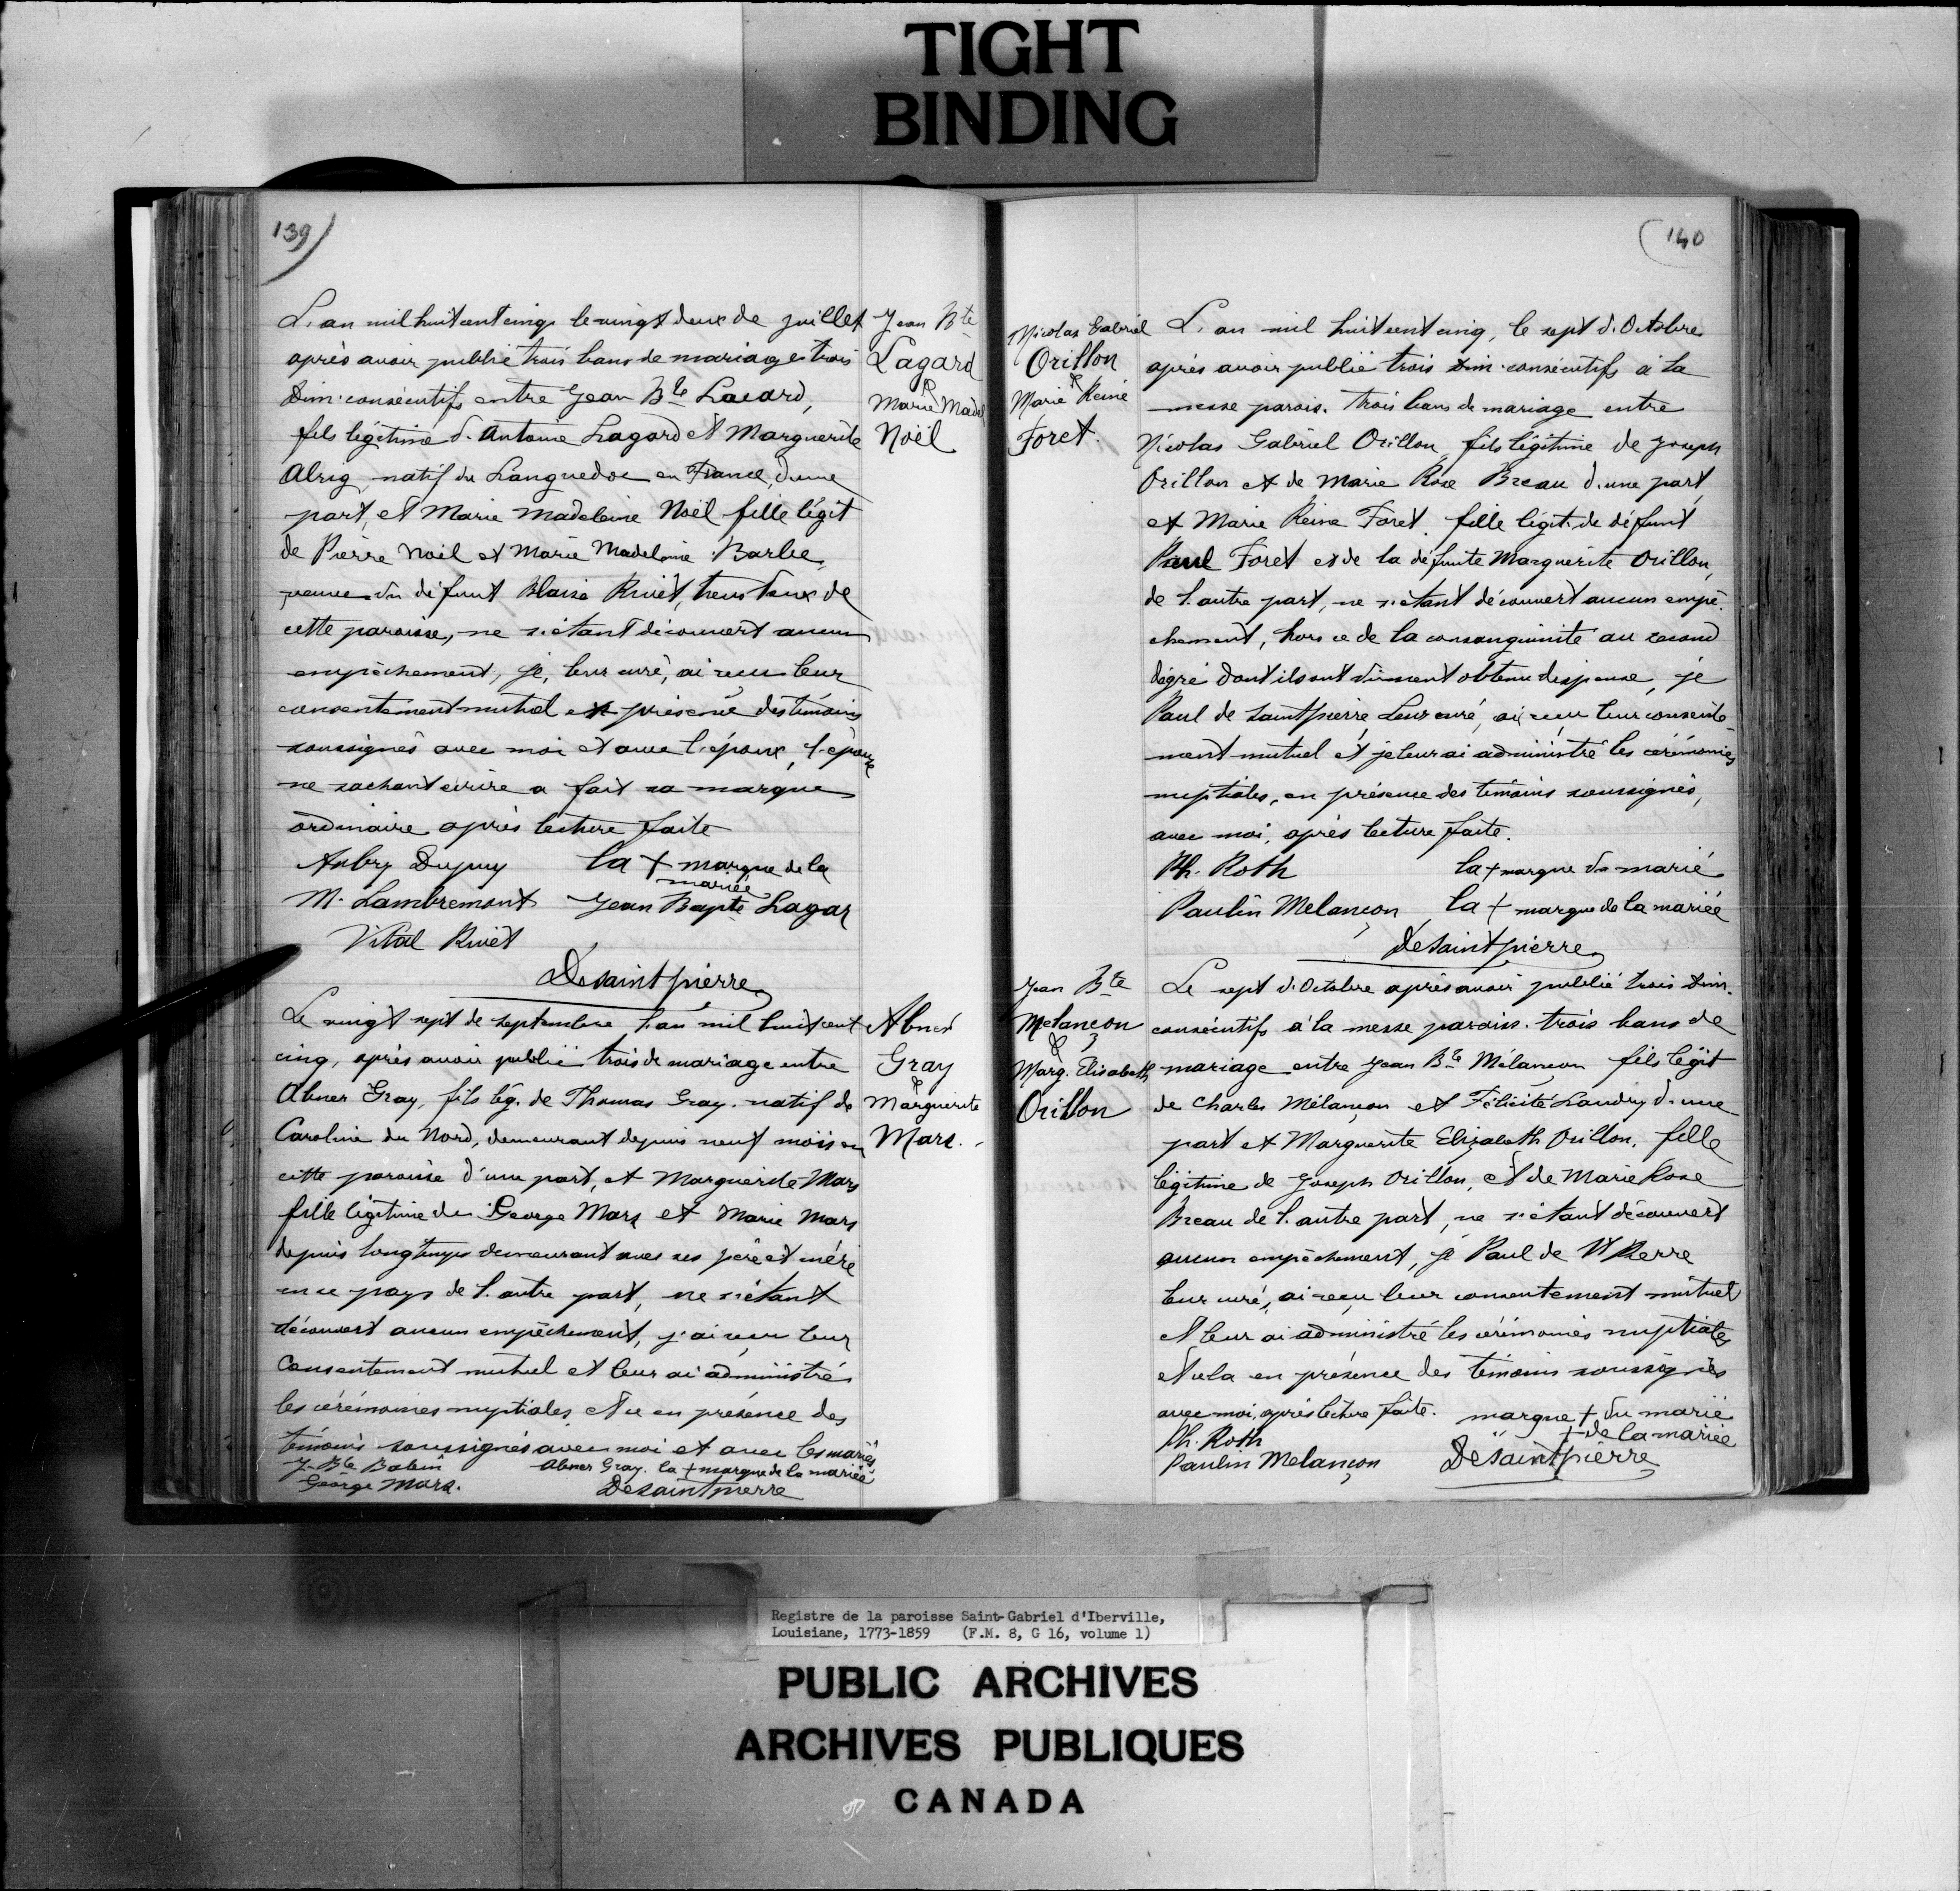 TIGHT
BINDING
139)
L'an mil huit cent cinq le vingt deux de juillet
après avoir publié trois bans de mariage trois
Dim. consécutifs entre Jean Bte Lacard,
fils légitime d'Antoine Lagard et Marguerite
Alrig, natif du Languedoc en France, d'une
part, et Marie Madeleine Noël fille légit
de Pierre Noël et Marie Madelaine Barbe,
veuve du défunt Blaise Rivet, tous deux de
cette paroisse, ne s'étant découvert aucun
empêchement, je, leur curé, ai reçu leur
consentement mutuel en présence des témoins
soussignés avec moi et avec l'époux, l'épouse
ne sachant écrire a fait sa marque
ordinaire après lecture faite
Aubry Dupuy la + marque de la
mariée
M. Lambremont Jean Bapte Lagar
Vital Rivet
Desaintpierre
Jean Bte
Lagard
&
Marie Madel
Noël
Le vingt sept de septembre l'an mil huit cent
cinq, après avoir publié trois de mariage entre
Abner Gray, fils lég. de Thomas Gray. natif de
Caroline du Nord, demeurant depuis neuf mois en
cette paroisse d'une part, et Marguerite Mars
fille légitime de George Mars et Marie Mars
depuis longtemps demeurant avec ses père et mère
en ce pays de l'autre part, ne s'étant
découvert aucun empêchement, j'ai reçu leur
Consentement mutuel et leur ai administré
les cérémonies nuptiales, et ce en présence des
témoins soussignés avec moi et avec les mariés
J. Bte Babin Abner Gray. la + marque de la mariée
George Mars. Desaintpierre
Abner
Gray
&
Marguerite
Mars.
(140
Nicolas Gabriel
Orillon
&
Marie Reine
Foret.
L'an mil huit cent cinq, le sept d'Octobre
après avoir publié trois dim. consécutifs à la
messe parois. trois bans de mariage entre
Nicolas Gabriel Orillon, fils légitime de Joseph
Orillon et de Marie Rose Breau d'une part,
et Marie Reine Foret, fille légit. de défunt
Paul Foret et de la défunte Marguerite Orillon,
de l'autre part, ne s'étant découvert aucun empê-
chement, hors ce de la consanguinité au second
dégré dont ils ont dûment obtenu dispense, je
Paul de Saintpierre, Leur curé, ai reçu leur consente
ment mutuel et je leur ai administré les cérémonies
nuptiales, en présence des témoins soussignés,
avec moi, après lecture faite.
Ph. Roth la + marque du marié
Paulin Melançon la + marque de la mariée
Desaintpierre
Jean Bte
Melançon
&
Marg. Elisabeth
Orillon
Le sept d'Octobre après avoir publié trois dim.
consécutifs à la messe paroiss. trois bans de
mariage entre Jean Bte Mélançon fils légit
de Charles Mélançon et Félicité Landry d'une
part et Marguerite Elizabeth Orillon, fille
légitime de Joseph Orillon, et de Marie Rose
Breau de l'autre part, ne s'étant découvert
aucun empêchement, je Paul de St Pierre
leur curé, ai reçu leur consentement mutuel
et leur ai administré les cérémonies nuptiales
et cela en présence des témoins soussignés
avec moi, après lecture faite. marque + du marié
Ph. Roth " + de la mariée
Paulin Melançon Desaintpierre
Registre de la paroisse Saint-Gabriel d'Iberville,
Louisiane, 1773-1859 (F.M. 8, G 16, volume 1)
PUBLIC ARCHIVES
ARCHIVES PUBLIQUES
CANADA